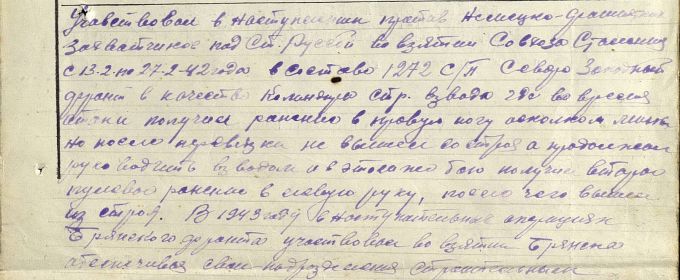 Учавствовал в наступлении против Немецко-фашистких
Захватчиков под Ст. Руссой во взятии Совхоза Сталина
с 13-2 по 27-2-42 года в составе 1272 с/п Северо Западный
фронт в качестве командира стр. взвода где во время
атаки получил ранение в правую ногу осколком мины
но после перевязки не вышел со строя а продолжал
руководить взводом и в этом же бою получил второе
пулевое ранение в левую руку, после чего вышел
из строя. В 1943 году в наступательных операциях
Брянского фронта участвовал во взятии Брянска
обеспечивая свои подразделения